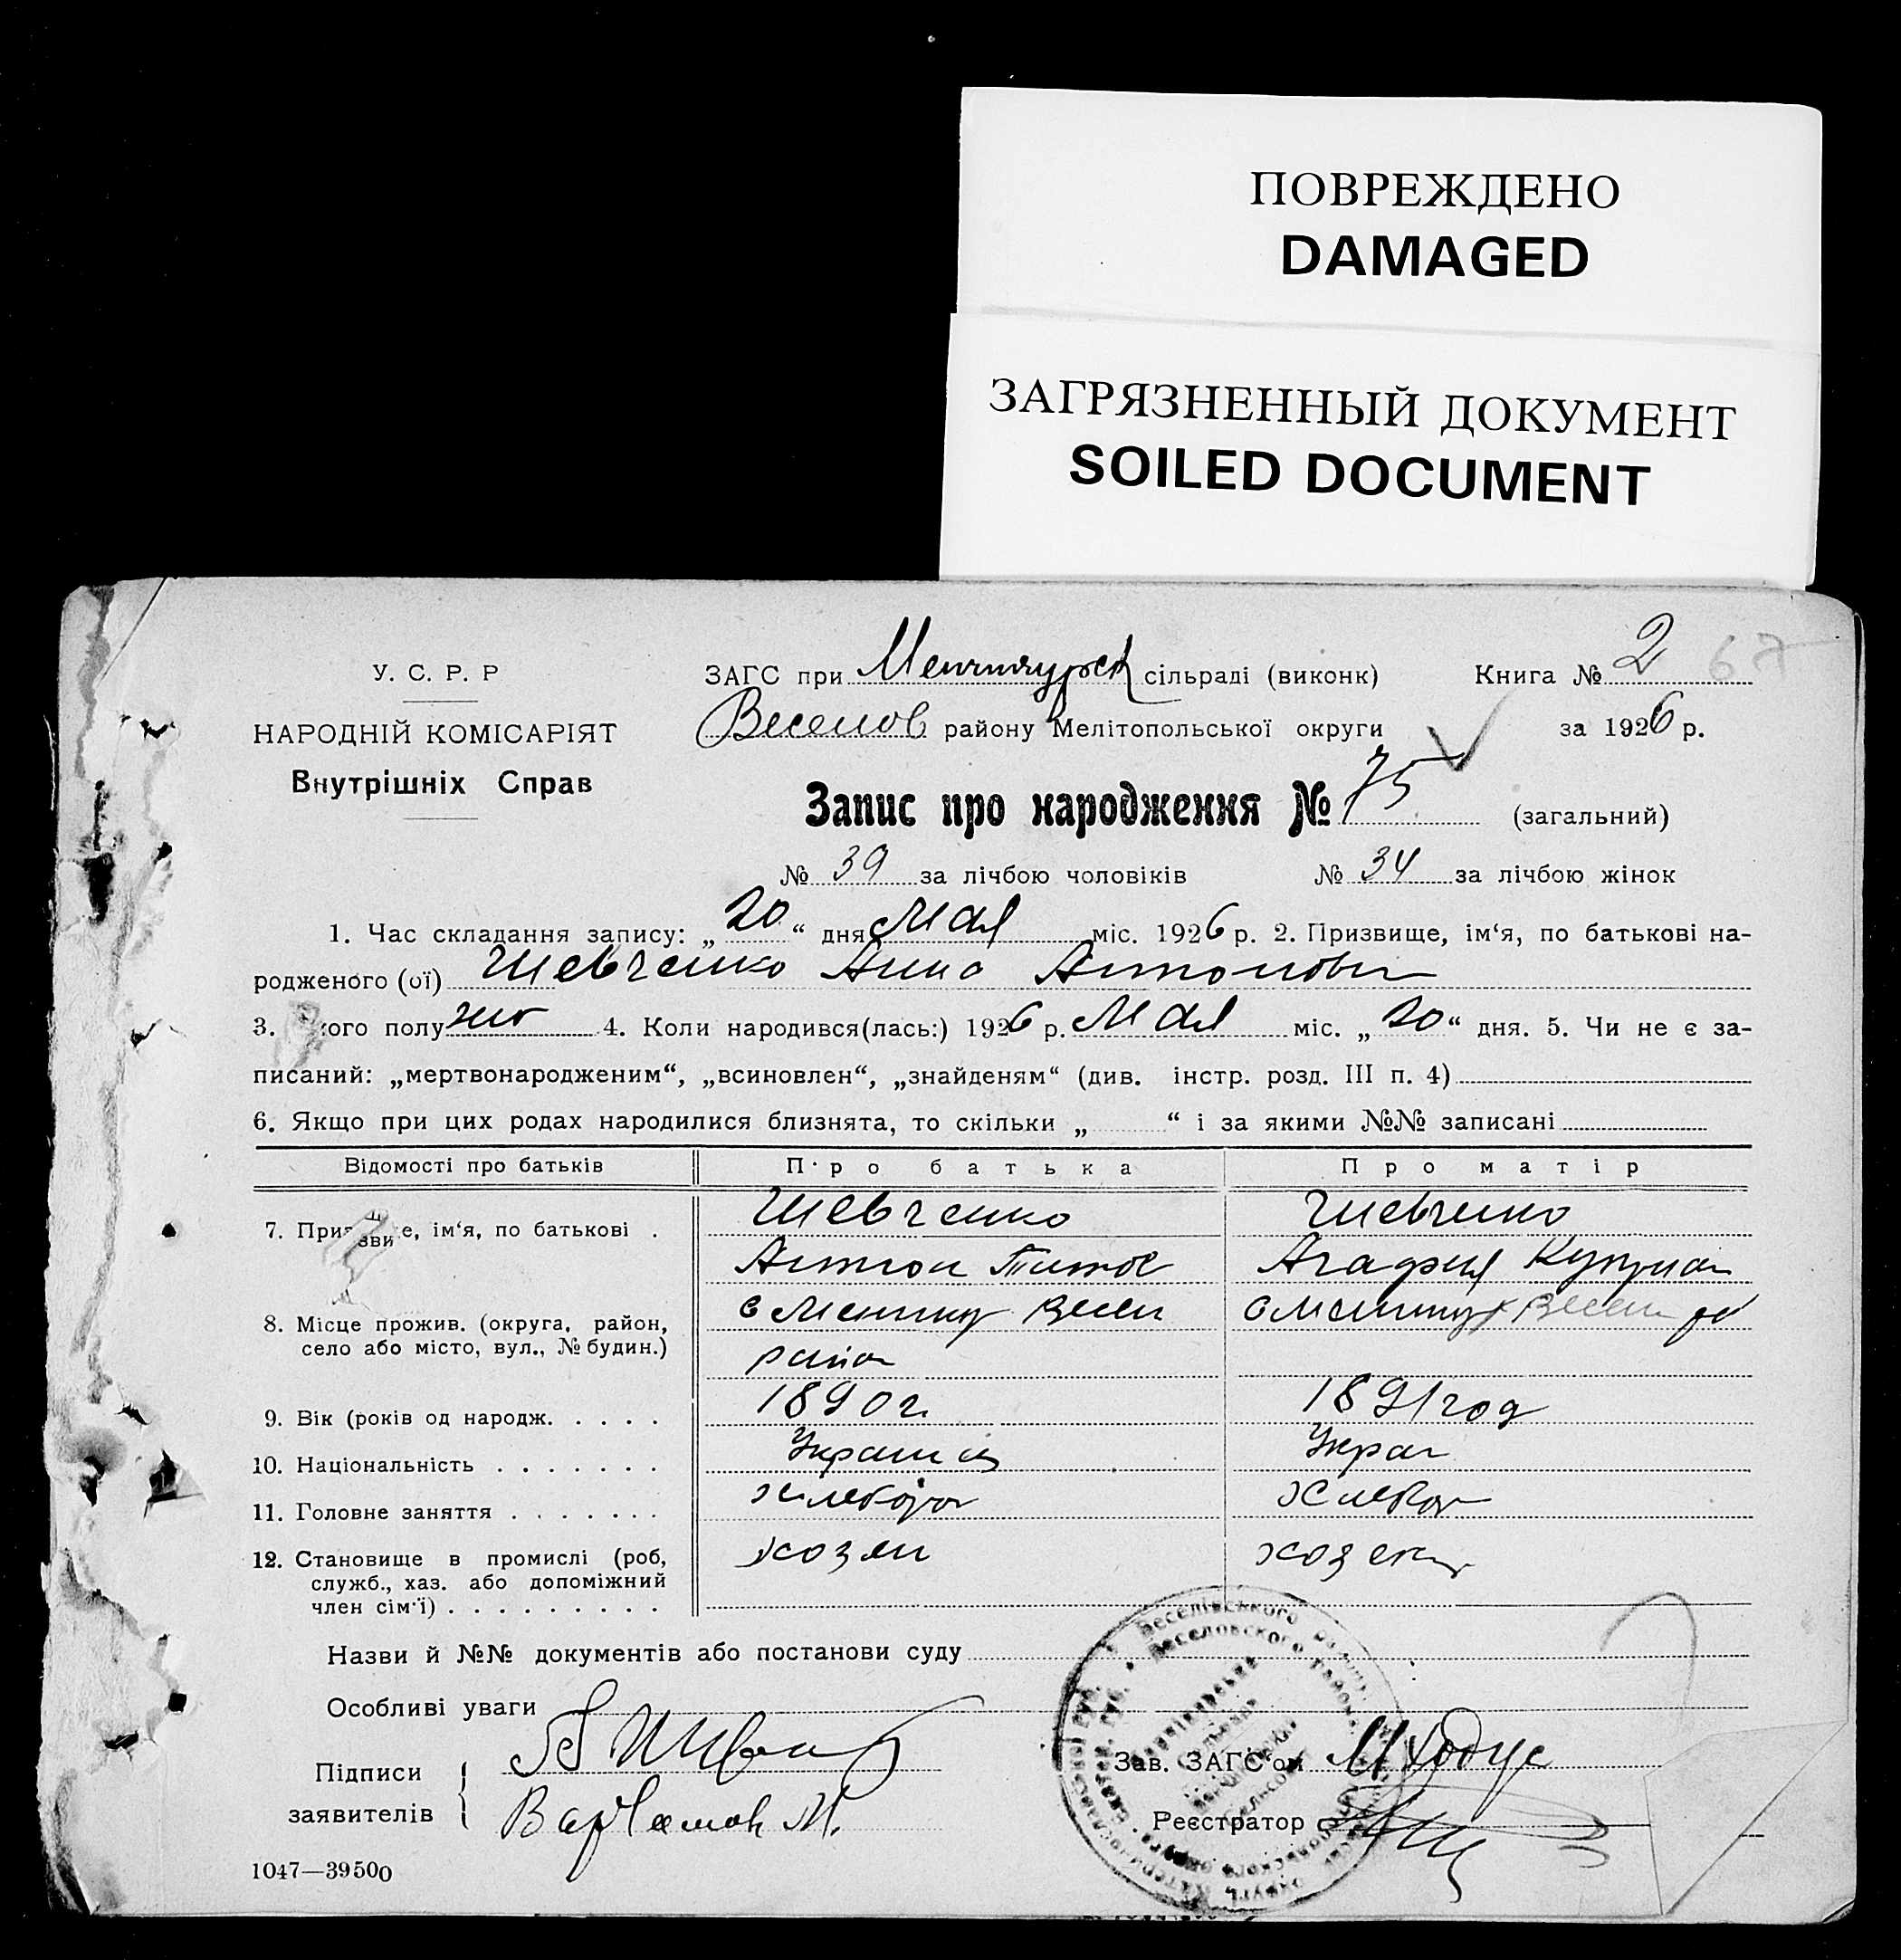 ПОВРЕЖДЕНО
DAMAGED
ЗАГРЯЗНЕННЫЙ ДОКУМЕНТ
SOILED DOCUMENT
У. С. Р. Р
НАРОДНІЙ КОМІСАРІЯТ
Внутрішніх Справ
ЗАГС при Менчикурск сільраді (виконк) Книга № 2 67
Веселов району Мелітопольської округи за 1926 р.
Запис про народження № 75 (загальний)
№ 39 за лічбою чоловіків № 34 за лічбою жінок
1. Час складання запису: „20“ дня Мая міс. 1926 р. 2. Призвище, ім‘я, по батькові на-
родженого (ої) Шевченко Анна Антонови
3. кого полу жен 4. Коли народився(лась:) 1926 р. Мая міс. „20“ дня. 5. Чи не є за-
писаний: „мертвонародженим“, „всиновлен“, „знайденям“ (див. інстр. розд. III п. 4)
6. Якщо при цих родах народилися близнята, то скільки „ “ і за якими №№ записані
Відомості про батьків Про батька Про матір
7. Призвище, ім‘я, по батькові . Шевченко Шевченко
Антон Титов Агафия Куприан
8. Місце прожив. (округа, район, с Менчику Весел с Менчику Весел
село або місто, вул., № будин.) район
9. Вік (років од народж. . . . . 1890 г. 1891 год
10. Національність . . . . . . . Украин Украи
11. Головне заняття . . . . . . . хлебороб хлебор
12. Становище в промислі (роб, хозяи хозяи
служб., хаз. або допоміжний
член сім‘ї) . . . . . . . . .
Назви й №№ документів або постанови суду
Особливі уваги
Підписи
заявителів Варламов М.
Зав. ЗАГС‘ом
Реєстратор
1047—39500